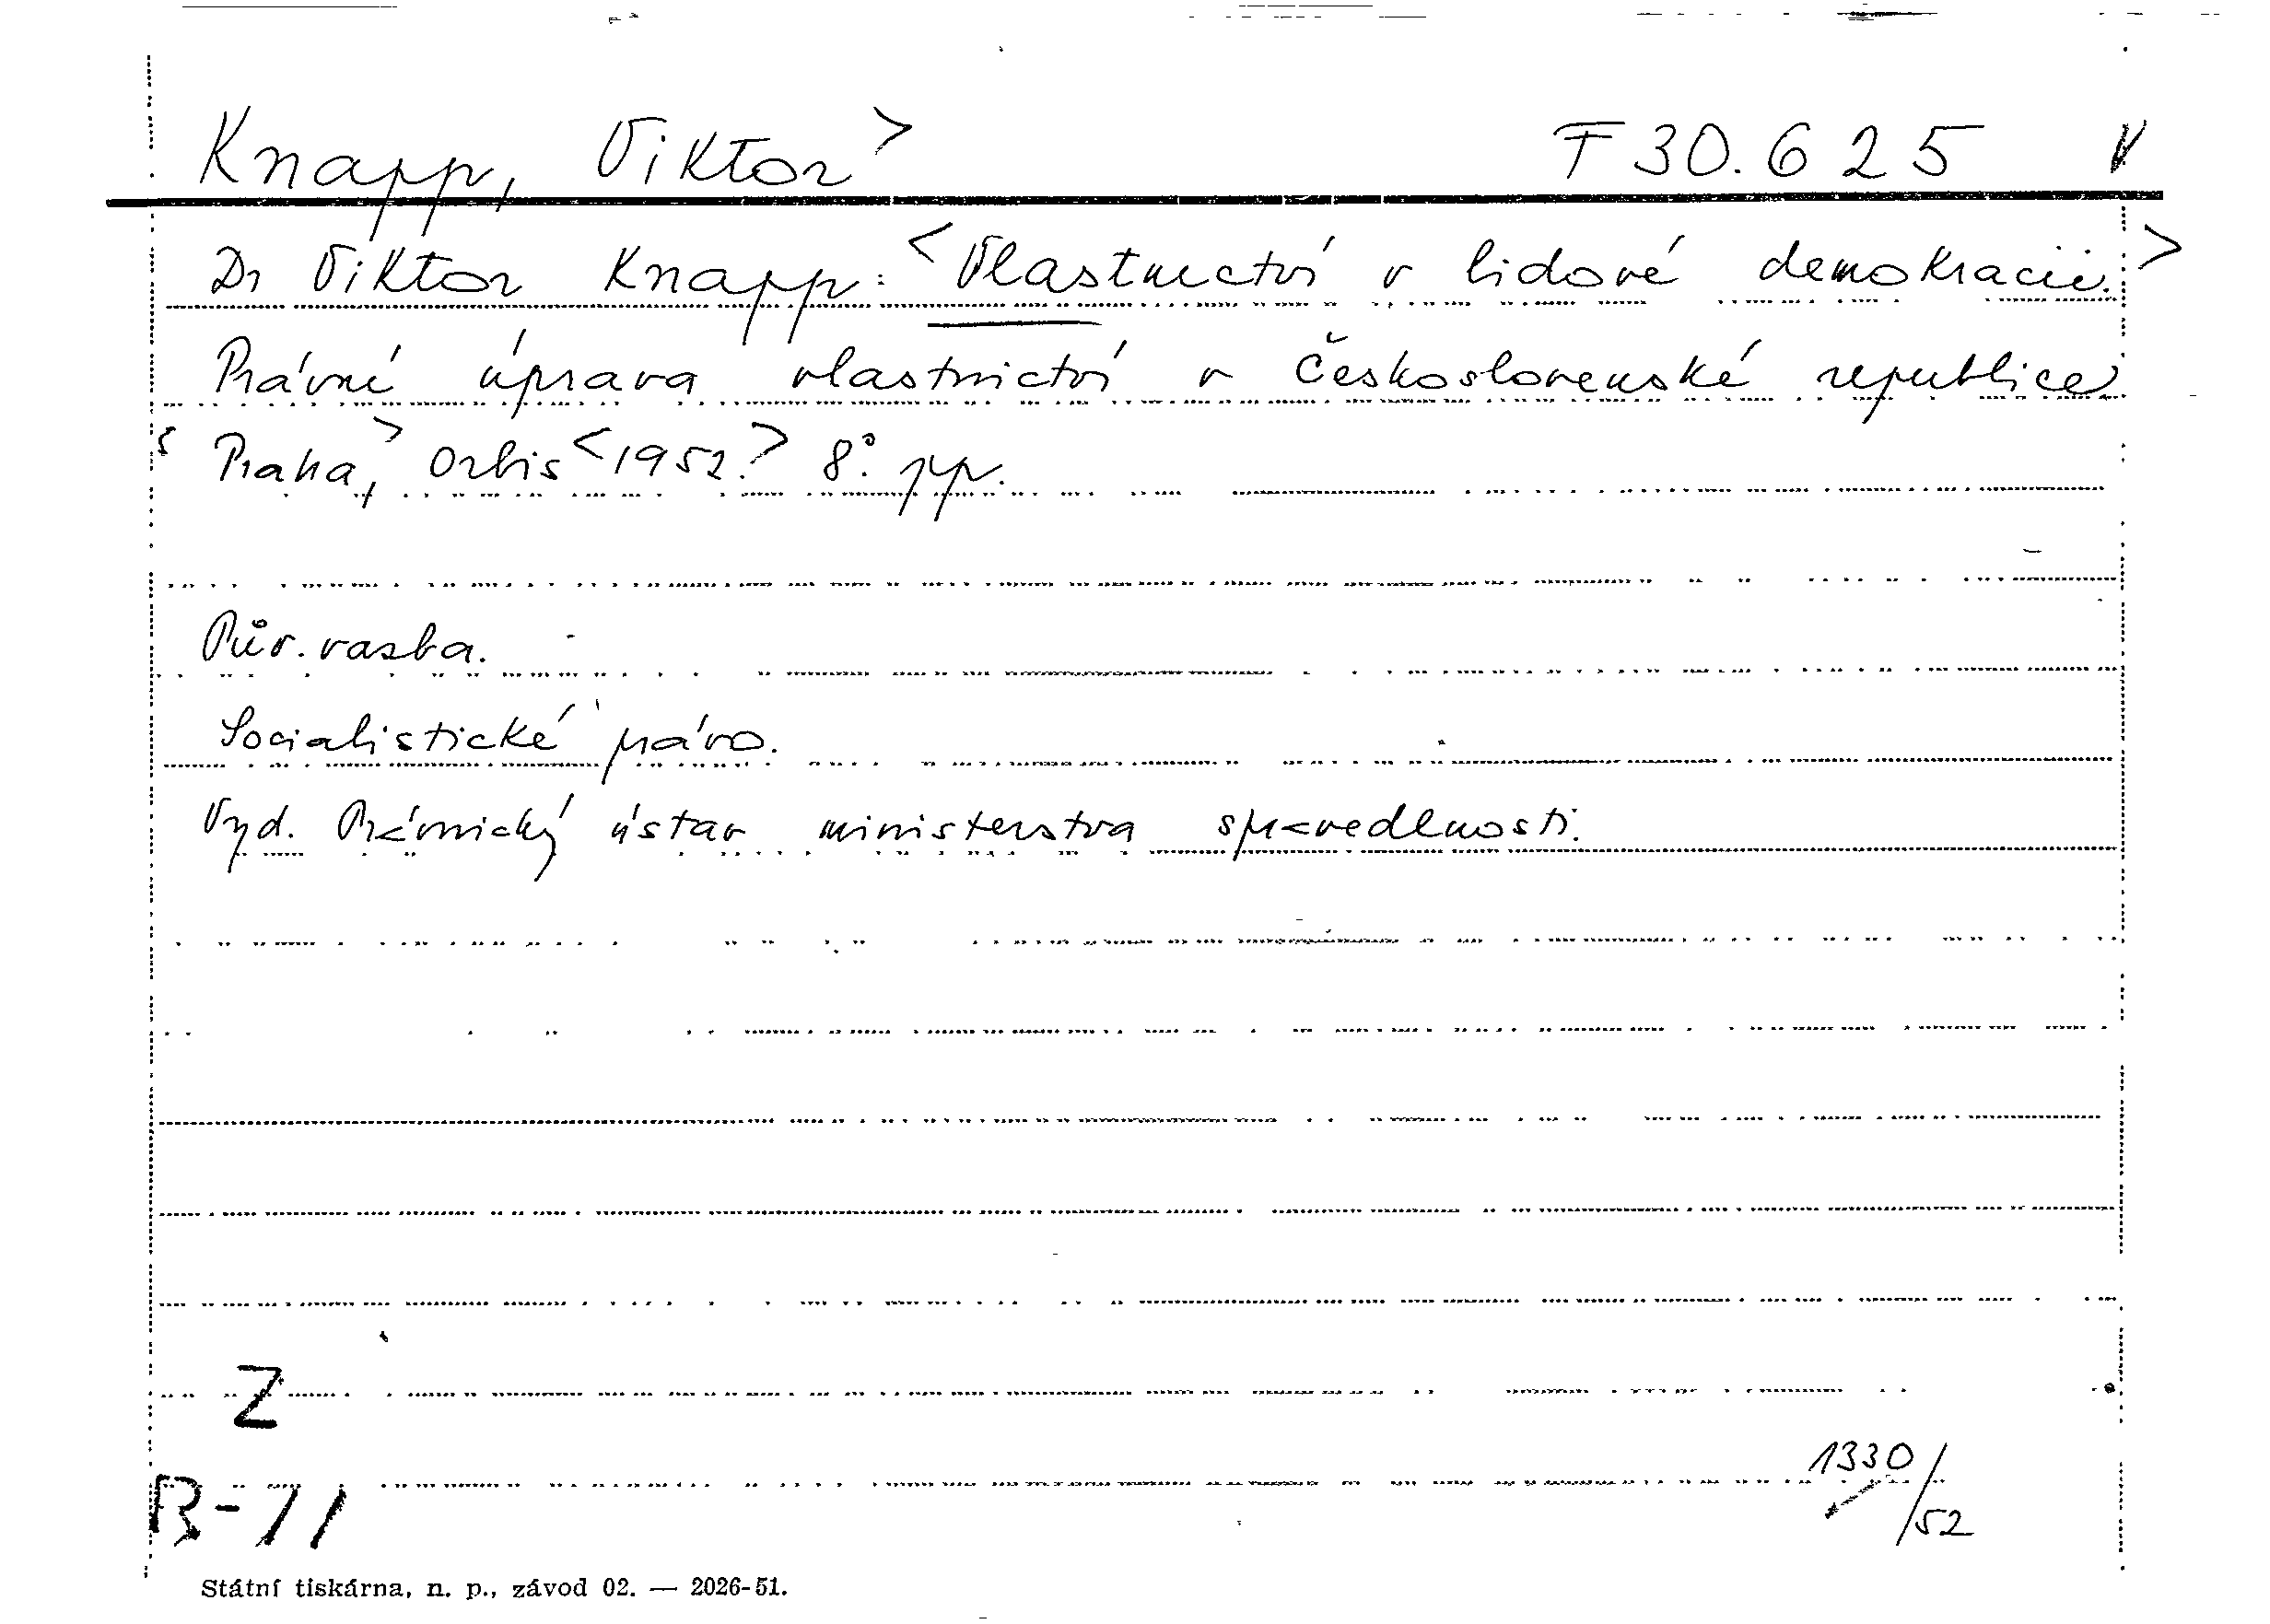 Knapp, Viktor> F 30.625 V
Dr Viktor Knapp: <Vlastnictví v lidové demokracii.>
Právní úprava vlastnictví v Československé republice
< Praha,> Orbis <1952.> 8°. pp.
Pův. vazba.
Socialistické právo.
Vyd. Právnický ústav ministerstva spravedlnosti.
Z
1330/52
B-71
Státní tiskárna, n. p., závod 02. — 2026-51.